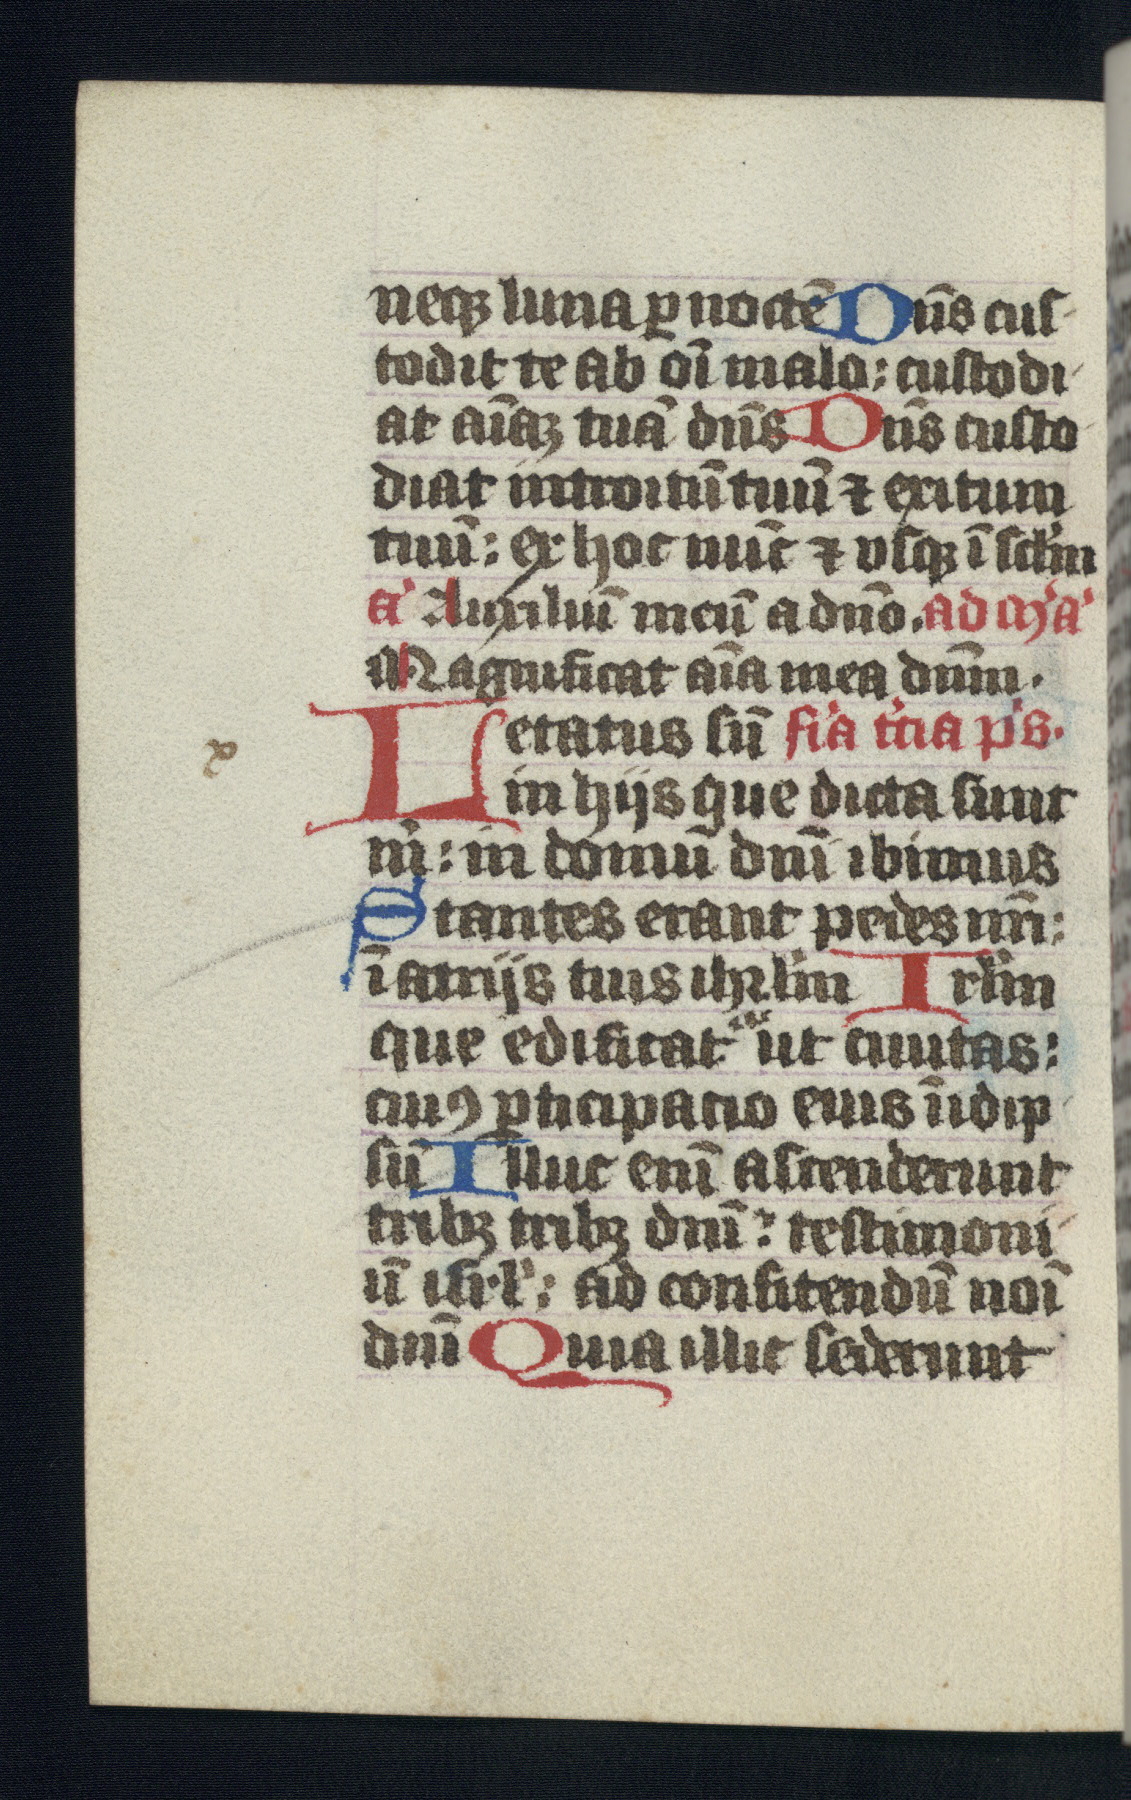 neqꝫ luna ꝑ noctē Dn̄s cus-
todit te ab oī malo: custodi-
at aīaꝫ tuā dn̄s Dn̄s custo-
diat introitū tuū ⁊ exitum
tuū: ex hoc nūc ⁊ vsqꝫ ī sc̄lm
a' Auxiliū meū a dn̄o. ad m'a'
Magnificat aīa mea dn̄m.
Letatus sū fi'a t'cia p's.
in hijs que dicta sunt
m': in domū dn̄i ibimus
Stantes erant pedes nr̄i:
ī atrijs tuis ihrl'm Irl'm
que edificat᷑ ut ciuitas:
cuiꝯ ꝑticipacio eius ī idip-
sū Illuc enī ascenderunt
tribꝫ tribꝫ dn̄i: testimoni-
ū isr̄l': ad confitendū noī
dn̄i Quia illic sederunt